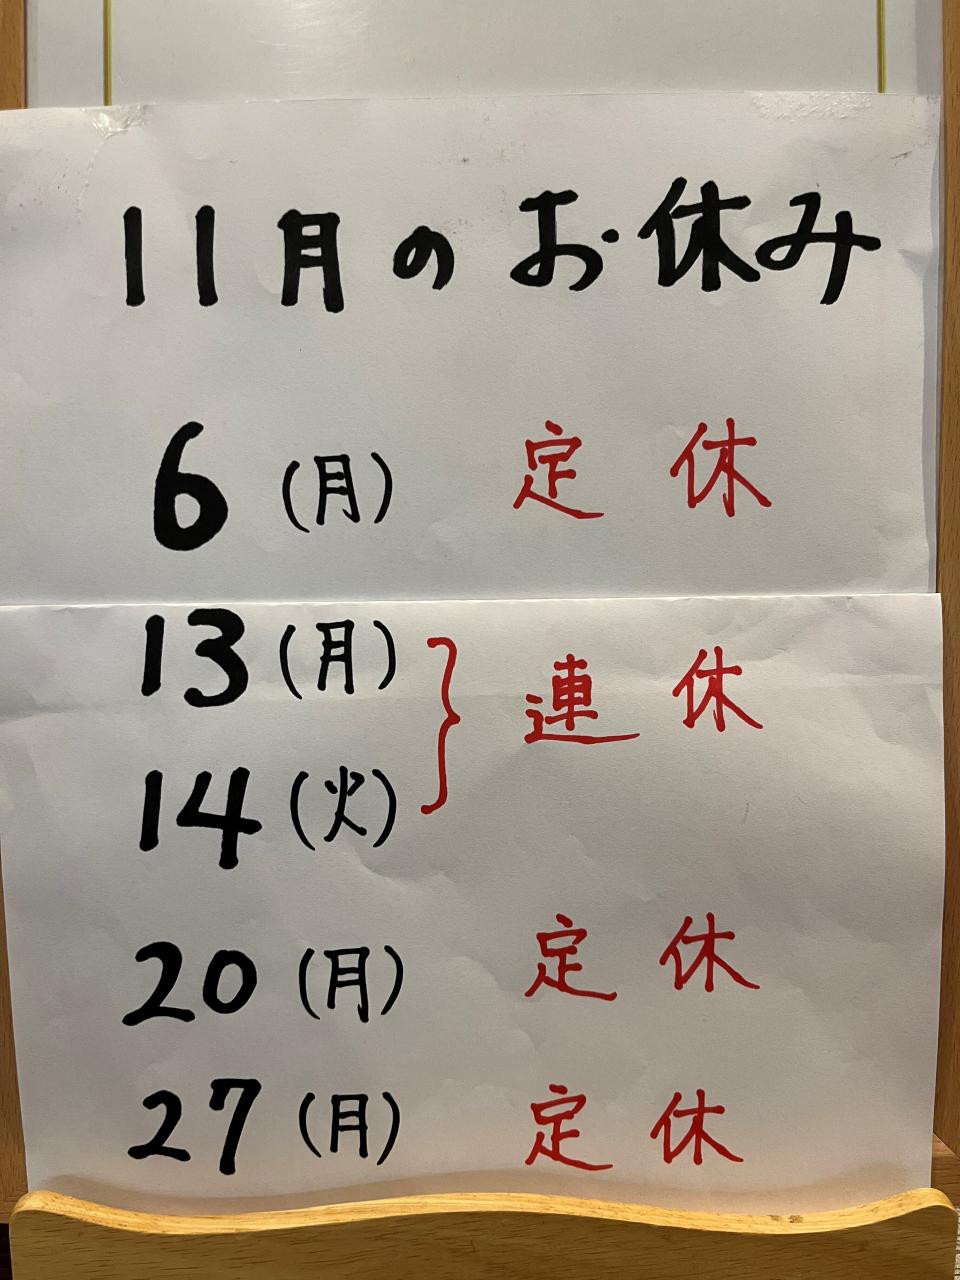 11月のお休み
6(月) 定休
13(月)
} 連休
14(火)
20(月) 定休
27(月) 定休